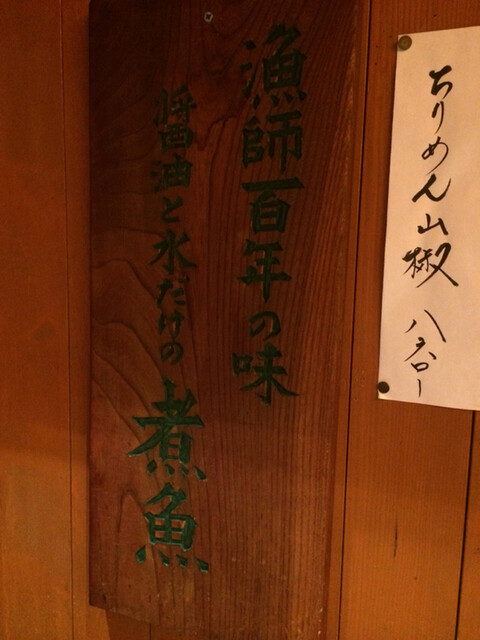 ちりめん山椒
漁師百年の味
醤油と水だけの
煮魚